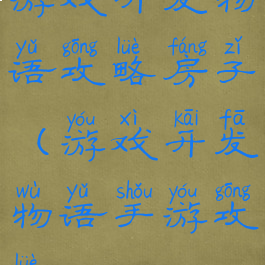 游戏开发物
yǔ gōng lüè fáng zǐ
语攻略房子
yóu xì kāi fā
（游戏开发
wù yǔ shǒu yóu gōng
物语手游攻
lüè